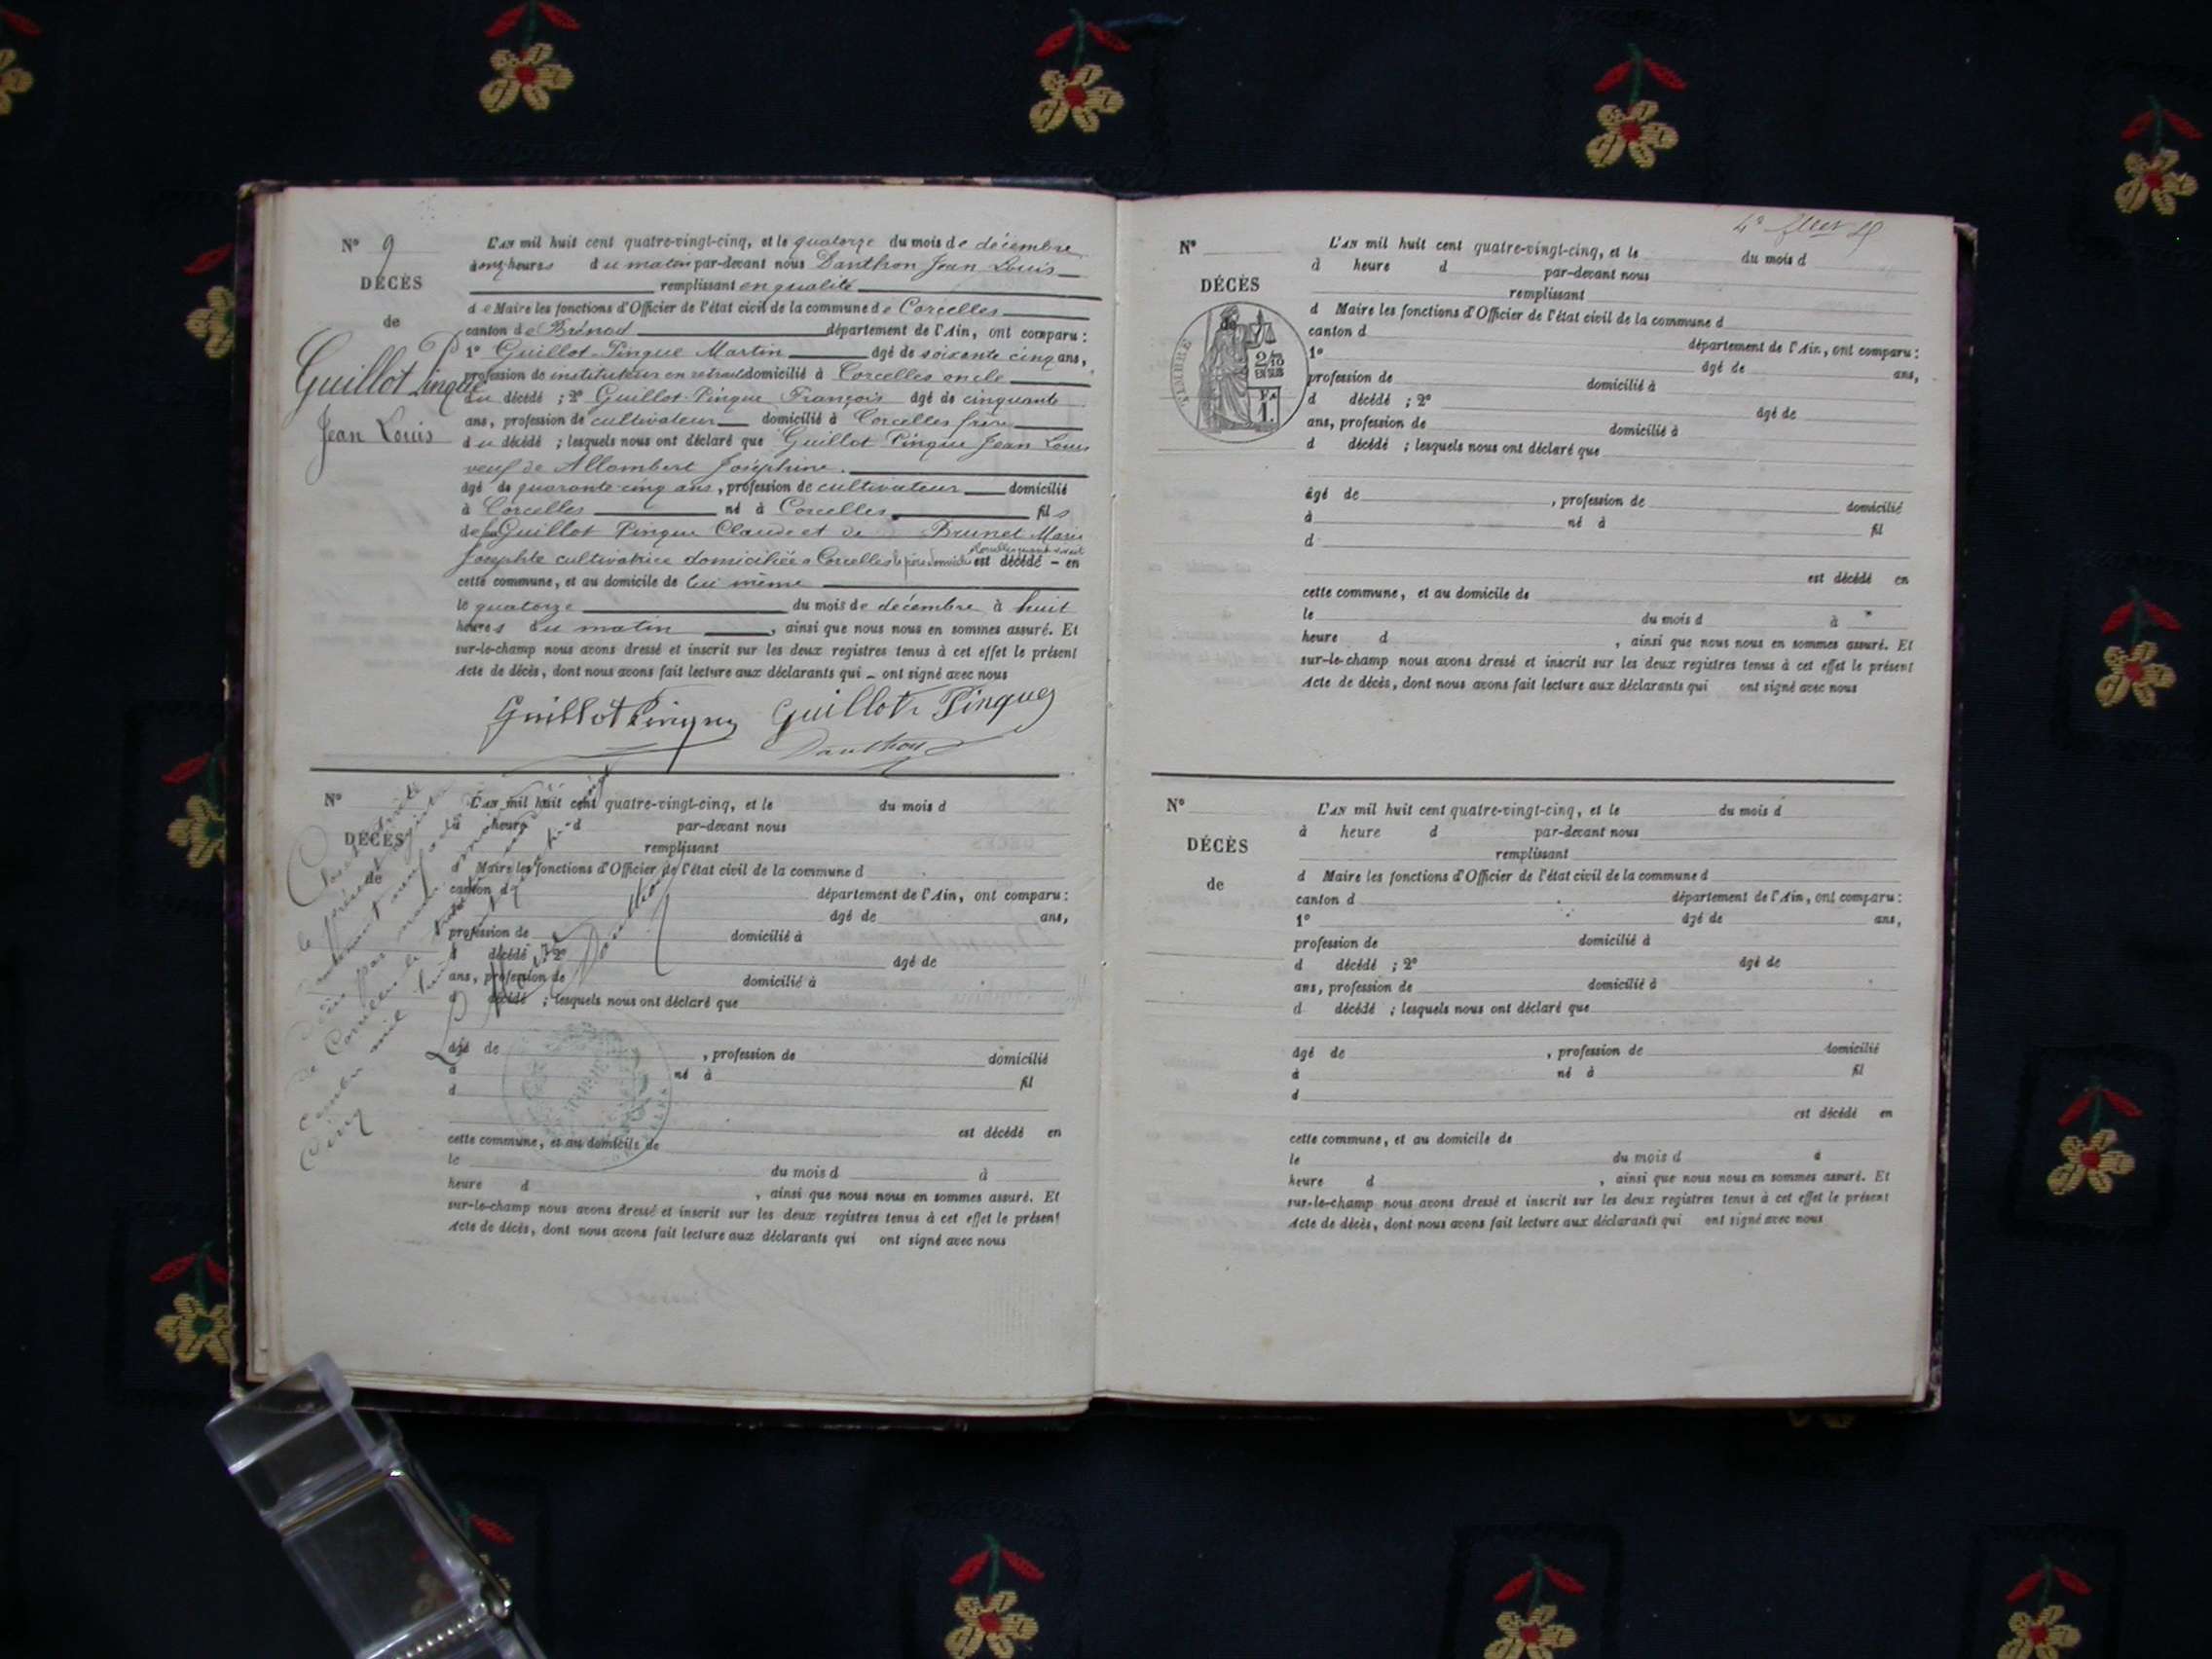 N° 9
DÉCÈS
de
Guillot Pingue
Jean Louis
L'AN mil huit cent quatre-vingt-cinq, et le quatorze du mois de décembre
heures du matin par-devant nous Danthon Jean Louis
remplissant en qualité
de Maire les fonctions d'Officier de l'état civil de la commune de Corcelles
canton de Brénod département de l'Ain, ont comparu :
1° Guillot-Pingue Martin âgé de soixante cinq ans,
profession de instituteur en retraite domicilié à Corcelles oncle
du décédé ; 2° Guillot-Pingue François âgé de cinquante
ans, profession de cultivateur domicilié à Corcelles frère
du décédé ; lesquels nous ont déclaré que Guillot Pingue Jean Louis
veuf de Allombert Joséphine.
âgé de quarante-cinq ans, profession de cultivateur domicilié
à Corcelles né à Corcelles fils
de feu Guillot Pingue Claude et de Brunet Marie
Josephte cultivatrice domiciliée à Corcelles est décédé - en
cette commune, et au domicile de lui même
le quatorze du mois de décembre à huit
heures du matin, ainsi que nous nous en sommes assuré. Et
sur-le-champ nous avons dressé et inscrit sur les deux registres tenus à cet effet le présent
Acte de décès, dont nous avons fait lecture aux déclarants qui - ont signé avec nous
Guillot Pingue Guillot Pingue
Danthon
N°
DÉCÈS
de
L'AN mil huit cent quatre-vingt-cinq, et le du mois d
à heure d par-devant nous
remplissant
d Maire les fonctions d'Officier de l'état civil de la commune d
canton d département de l'Ain, ont comparu :
âgé de ans,
profession de domicilié à
d décédé ; 2° âgé de
ans, profession de domicilié à
d décédé ; lesquels nous ont déclaré que
âgé de , profession de domicilié
à né à fil
d
est décédé en
cette commune, et au domicile de
le du mois d à
heure d , ainsi que nous nous en sommes assuré. Et
sur-le-champ nous avons dressé et inscrit sur les deux registres tenus à cet effet le présent
Acte de décès, dont nous avons fait lecture aux déclarants qui ont signé avec nous
N°
DÉCÈS
de
TIMBRE
2/10
EN SUS
1.
L'AN mil huit cent quatre-vingt-cinq, et le du mois d
à heure d par-devant nous
remplissant
d Maire les fonctions d'Officier de l'état civil de la commune d
canton d département de l'Ain, ont comparu :
1° âgé de ans,
profession de domicilié à
d décédé ; 2° âgé de
ans, profession de domicilié à
d décédé ; lesquels nous ont déclaré que
âgé de , profession de domicilié
à né à fil
d
est décédé en
cette commune, et au domicile de
le du mois d à
heure d , ainsi que nous nous en sommes assuré. Et
sur-le-champ nous avons dressé et inscrit sur les deux registres tenus à cet effet le présent
Acte de décès, dont nous avons fait lecture aux déclarants qui ont signé avec nous
N°
DÉCÈS
de
L'AN mil huit cent quatre-vingt-cinq, et le du mois d
à heure d par-devant nous
remplissant
d Maire les fonctions d'Officier de l'état civil de la commune d
canton d département de l'Ain, ont comparu :
1° âgé de ans,
profession de domicilié à
d décédé ; 2° âgé de
ans, profession de domicilié à
d décédé ; lesquels nous ont déclaré que
âgé de , profession de domicilié
à né à fil
d
est décédé en
cette commune, et au domicile de
le du mois d à
heure d , ainsi que nous nous en sommes assuré. Et
sur-le-champ nous avons dressé et inscrit sur les deux registres tenus à cet effet le présent
Acte de décès, dont nous avons fait lecture aux déclarants qui ont signé avec nous